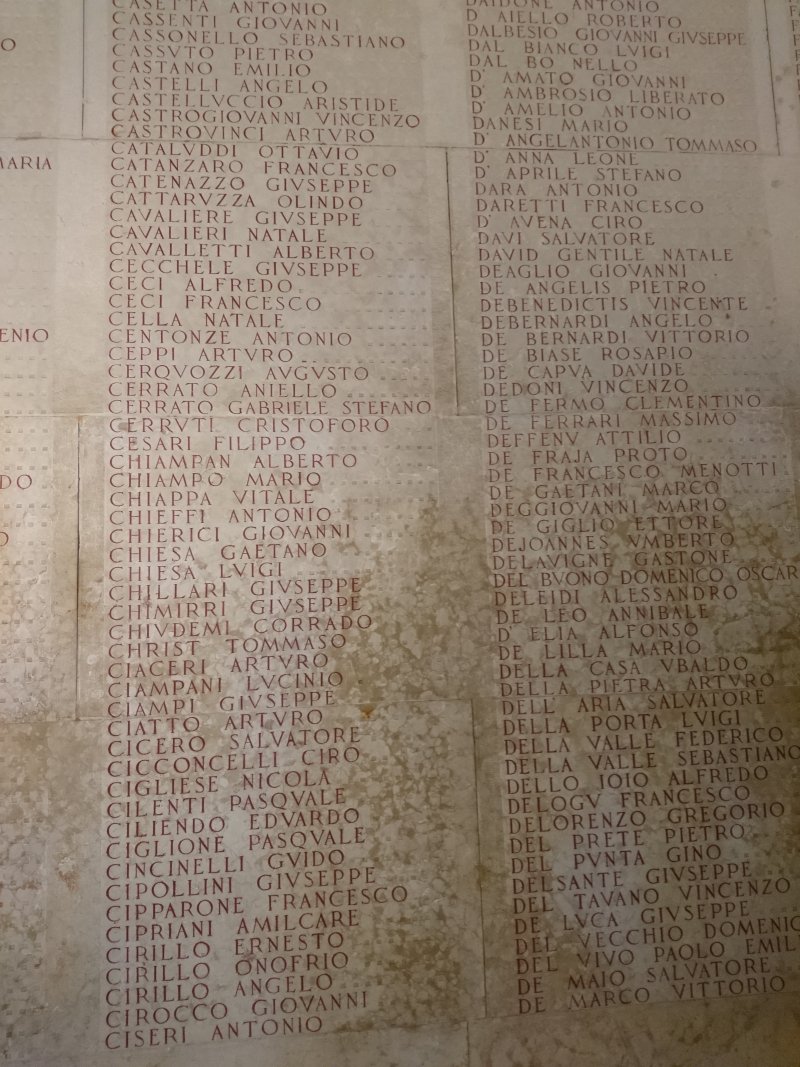 O
MARIA
ENIO
DO
O
CASETTA ANTONIO
CASSENTI GIOVANNI
CASSONELLO SEBASTIANO
CASSVTO PIETRO
CASTANO EMILIO
CASTELLI ANGELO
CASTELLVCCIO ARISTIDE
CASTROGIOVANNI VINCENZO
CASTROVINCI ARTVRO
CATALVDDI OTTAVIO
CATANZARO FRANCESCO
CATENAZZO GIVSEPPE
CATTARVZZA OLINDO
CAVALIERE GIVSEPPE
CAVALIERI NATALE
CAVALLETTI ALBERTO
CECCHELE GIVSEPPE
CECI ALFREDO
CECI FRANCESCO
CELLA NATALE
CENTONZE ANTONIO
CEPPI ARTVRO
CERQVOZZI AVGVSTO
CERRATO ANIELLO
CERRATO GABRIELE STEFANO
CERRVTI CRISTOFORO
CESARI FILIPPO
CHIAMPAN ALBERTO
CHIAMPO MARIO
CHIAPPA VITALE
CHIEFFI ANTONIO
CHIERICI GIOVANNI
CHIESA GAETANO
CHIESA LVIGI
CHILLARI GIVSEPPE
CHIMIRRI GIVSEPPE
CHIVDEMI CORRADO
CHRIST TOMMASO
CIACERI ARTVRO
CIAMPANI LVCINIO
CIAMPI GIVSEPPE
CIATTO ARTVRO
CICERO SALVATORE
CICCONCELLI CIRO
CIGLIESE NICOLA
CILENTI PASQVALE
CILIENDO EDVARDO
CIGLIONE PASQVALE
CINCINELLI GVIDO
CIPOLLINI GIVSEPPE
CIPPARONE FRANCESCO
CIPRIANI AMILCARE
CIRILLO ERNESTO
CIRILLO ONOFRIO
CIRILLO ANGELO
CIROCCO GIOVANNI
CISERI ANTONIO
DAIDONE ANTONIO
D' AIELLO ROBERTO
DALBESIO GIOVANNI GIVSEPPE
DAL BIANCO LVIGI
DAL BO NELLO
D' AMATO GIOVANNI
D' AMBROSIO LIBERATO
D' AMELIO ANTONIO
DANESI MARIO
D' ANGELANTONIO TOMMASO
D' ANNA LEONE
D' APRILE STEFANO
DARA ANTONIO
DARETTI FRANCESCO
D' AVENA CIRO
DAVI SALVATORE
DAVID GENTILE NATALE
DEAGLIO GIOVANNI
DE ANGELIS PIETRO
DEBENEDICTIS VINCENTE
DEBERNARDI ANGELO
DE BERNARDI VITTORIO
DE BIASE ROSAPIO
DE CAPVA DAVIDE
DEDONI VINCENZO
DE FERMO CLEMENTINO
DE FERRARI MASSIMO
DEFFENV ATTILIO
DE FRAJA PROTO
DE FRANCESCO MENOTTI
DE GAETANI MARCO
DEGGIOVANNI MARIO
DE GIGLIO ETTORE
DEJOANNES VMBERTO
DELAVIGNE GASTONE
DEL BVONO DOMENICO OSCAR
DELEIDI ALESSANDRO
DE LEO ANNIBALE
D' ELIA ALFONSO
DE LILLA MARIO
DELLA CASA VBALDO
DELLA PIETRA ARTVRO
DELL' ARIA SALVATORE
DELLA PORTA LVIGI
DELLA VALLE FEDERICO
DELLA VALLE SEBASTIANO
DELLO IOIO ALFREDO
DELOGV FRANCESCO
DELORENZO GREGORIO
DEL PRETE PIETRO
DEL PVNTA GINO
DELSANTE GIVSEPPE
DEL TAVANO VINCENZO
DE LVCA GIVSEPPE
DEL VECCHIO DOMENIC
DEL VIVO PAOLO EMIL
DE MAIO SALVATORE
DE MARCO VITTORIO